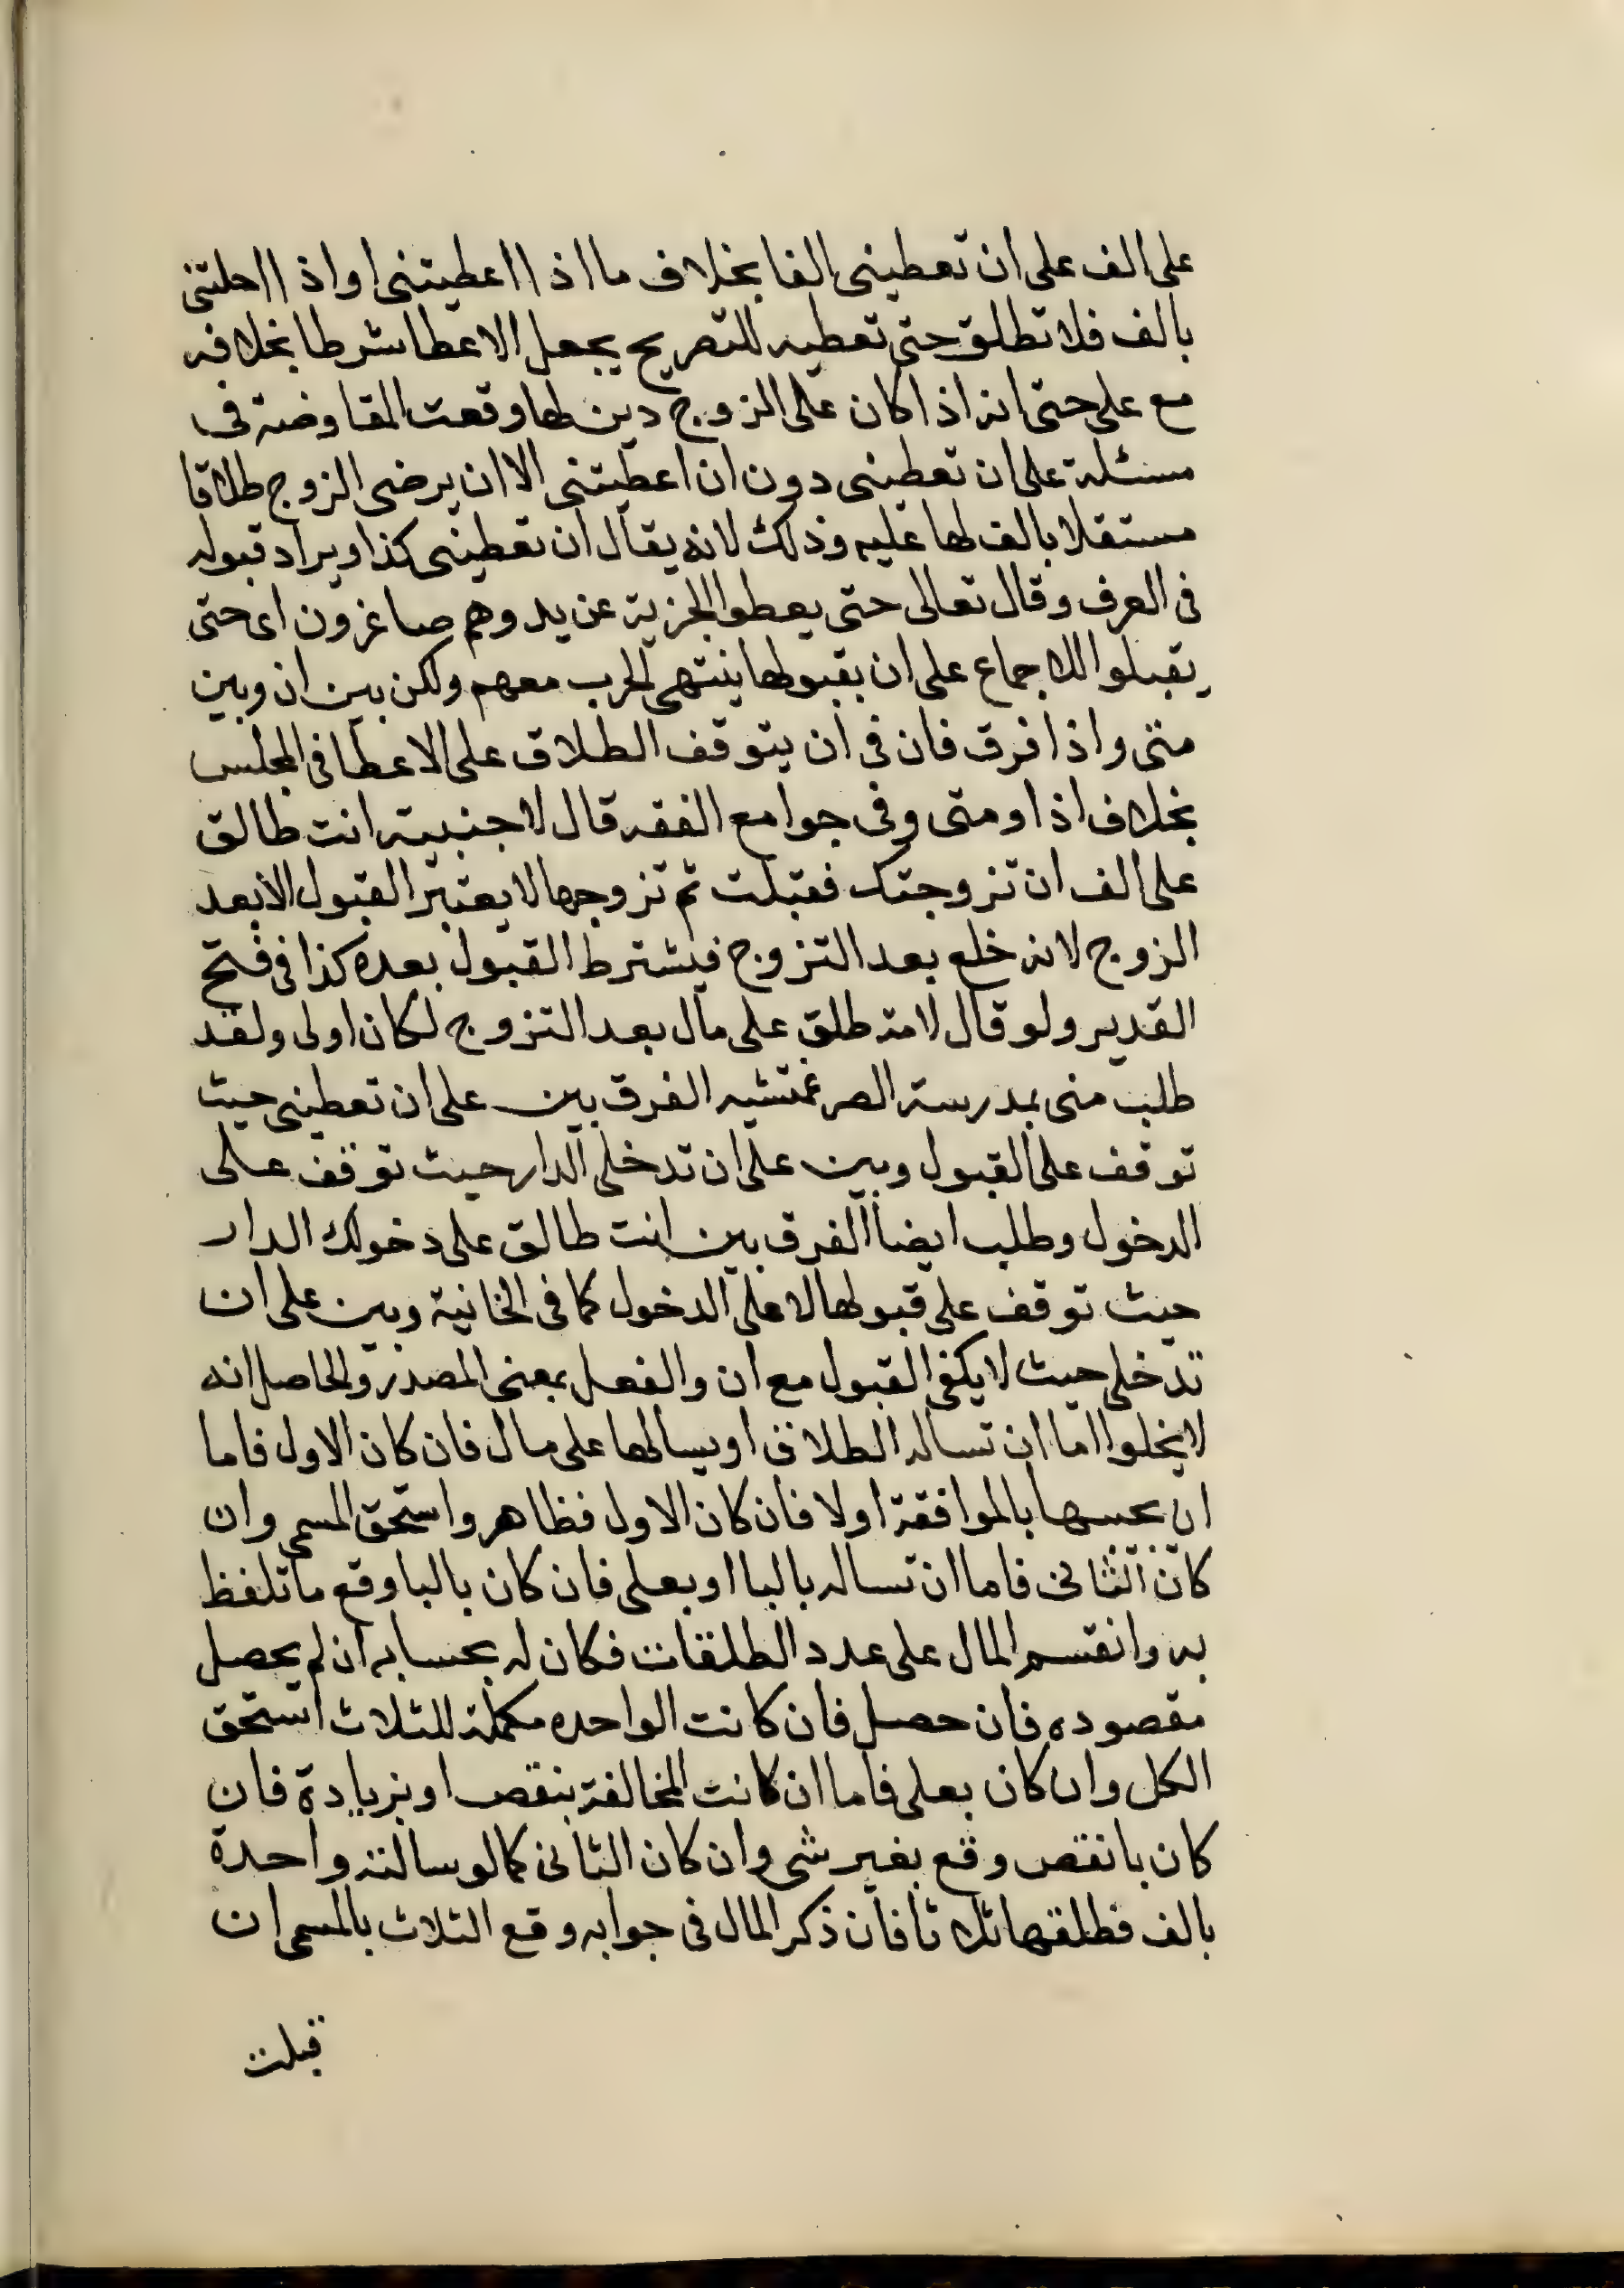 على الف على ان تعطينى الفا بخلاف ما اذا اعطيتنى او اذا احلتنى
بالف فلا تطلق حتى تعطيه للتصريح بجعل الاعطا شرطا بخلافه
مع على حتى انه اذا كان على الزوج دين لها وقعت المقاوضة فى
مسئلة على ان تعطينى دون ان اعطيتنى الا ان يرضى الزوج طلاقا
مستقلا بالف لها عليه وذلك لانه يقال ان تعطينى كذا ويراد قبوله
فى العرف وقال تعالى حتى يعطوا الجزية عن يد وهم صاغرون اى حتى
يقبلوا للاجماع على ان بقبولها ينتهى الحرب معهم ولكن بين ان وبين
متى واذا فرق فان فى ان يتوقف الطلاق على الاعطا فى المجلس
بخلاف اذا ومتى وفى جوامع الفقه قال لاجنبية انت طالق
على الف ان تزوجتك فقبلت ثم تزوجها لا يعتبر القبول الا بعد
الزوج لانه خلع بعد التزوج فيشترط القبول بعده كذا فى فتح
القدير ولو قال لامته طلق على مال بعد التزوج لكان اولى ولقد
طلب منى بمدرسة الصرغمتشيه الفرق بين على ان تعطينى حيث
توقف على القبول وبين على ان تدخلى الدار حيث توقف على
الدخول وطلب ايضا الفرق بين انت طالق على دخولك الدار
حيث توقف على قبولها لا على الدخول كما فى الخانية وبين على ان
تدخلى حيث لا يكفى القبول مع ان والفعل بمعنى المصدر والحاصل انه
لا يخلوا اما ان تساله الطلاق او يسالها على مال فان كان الاول فاما
ان بالموافقة اولا فان كان الاول فظاهر واستحق المسمى وان
كان الثانى فاما ان تساله بالبا او بعلى فان كان بالبا وقع ما تلفظ
به وانقسم المال على عدد الطلقات فكان له بحسابه ان لم يحصل
مقصوده فان حصل فان كانت الواحده مكملة للثلاث استحق
الكل وان كان بعلى فاما ان كانت المخالفة بنقص او بزيادة فان
كان بانقص وقع بغير شى وان كان الثانى كما لو سالته واحدة
بالف فطلقها ثلاثا فان ذكر المال فى جوابه وقع الثلاث بالمسمى ان
قبلت